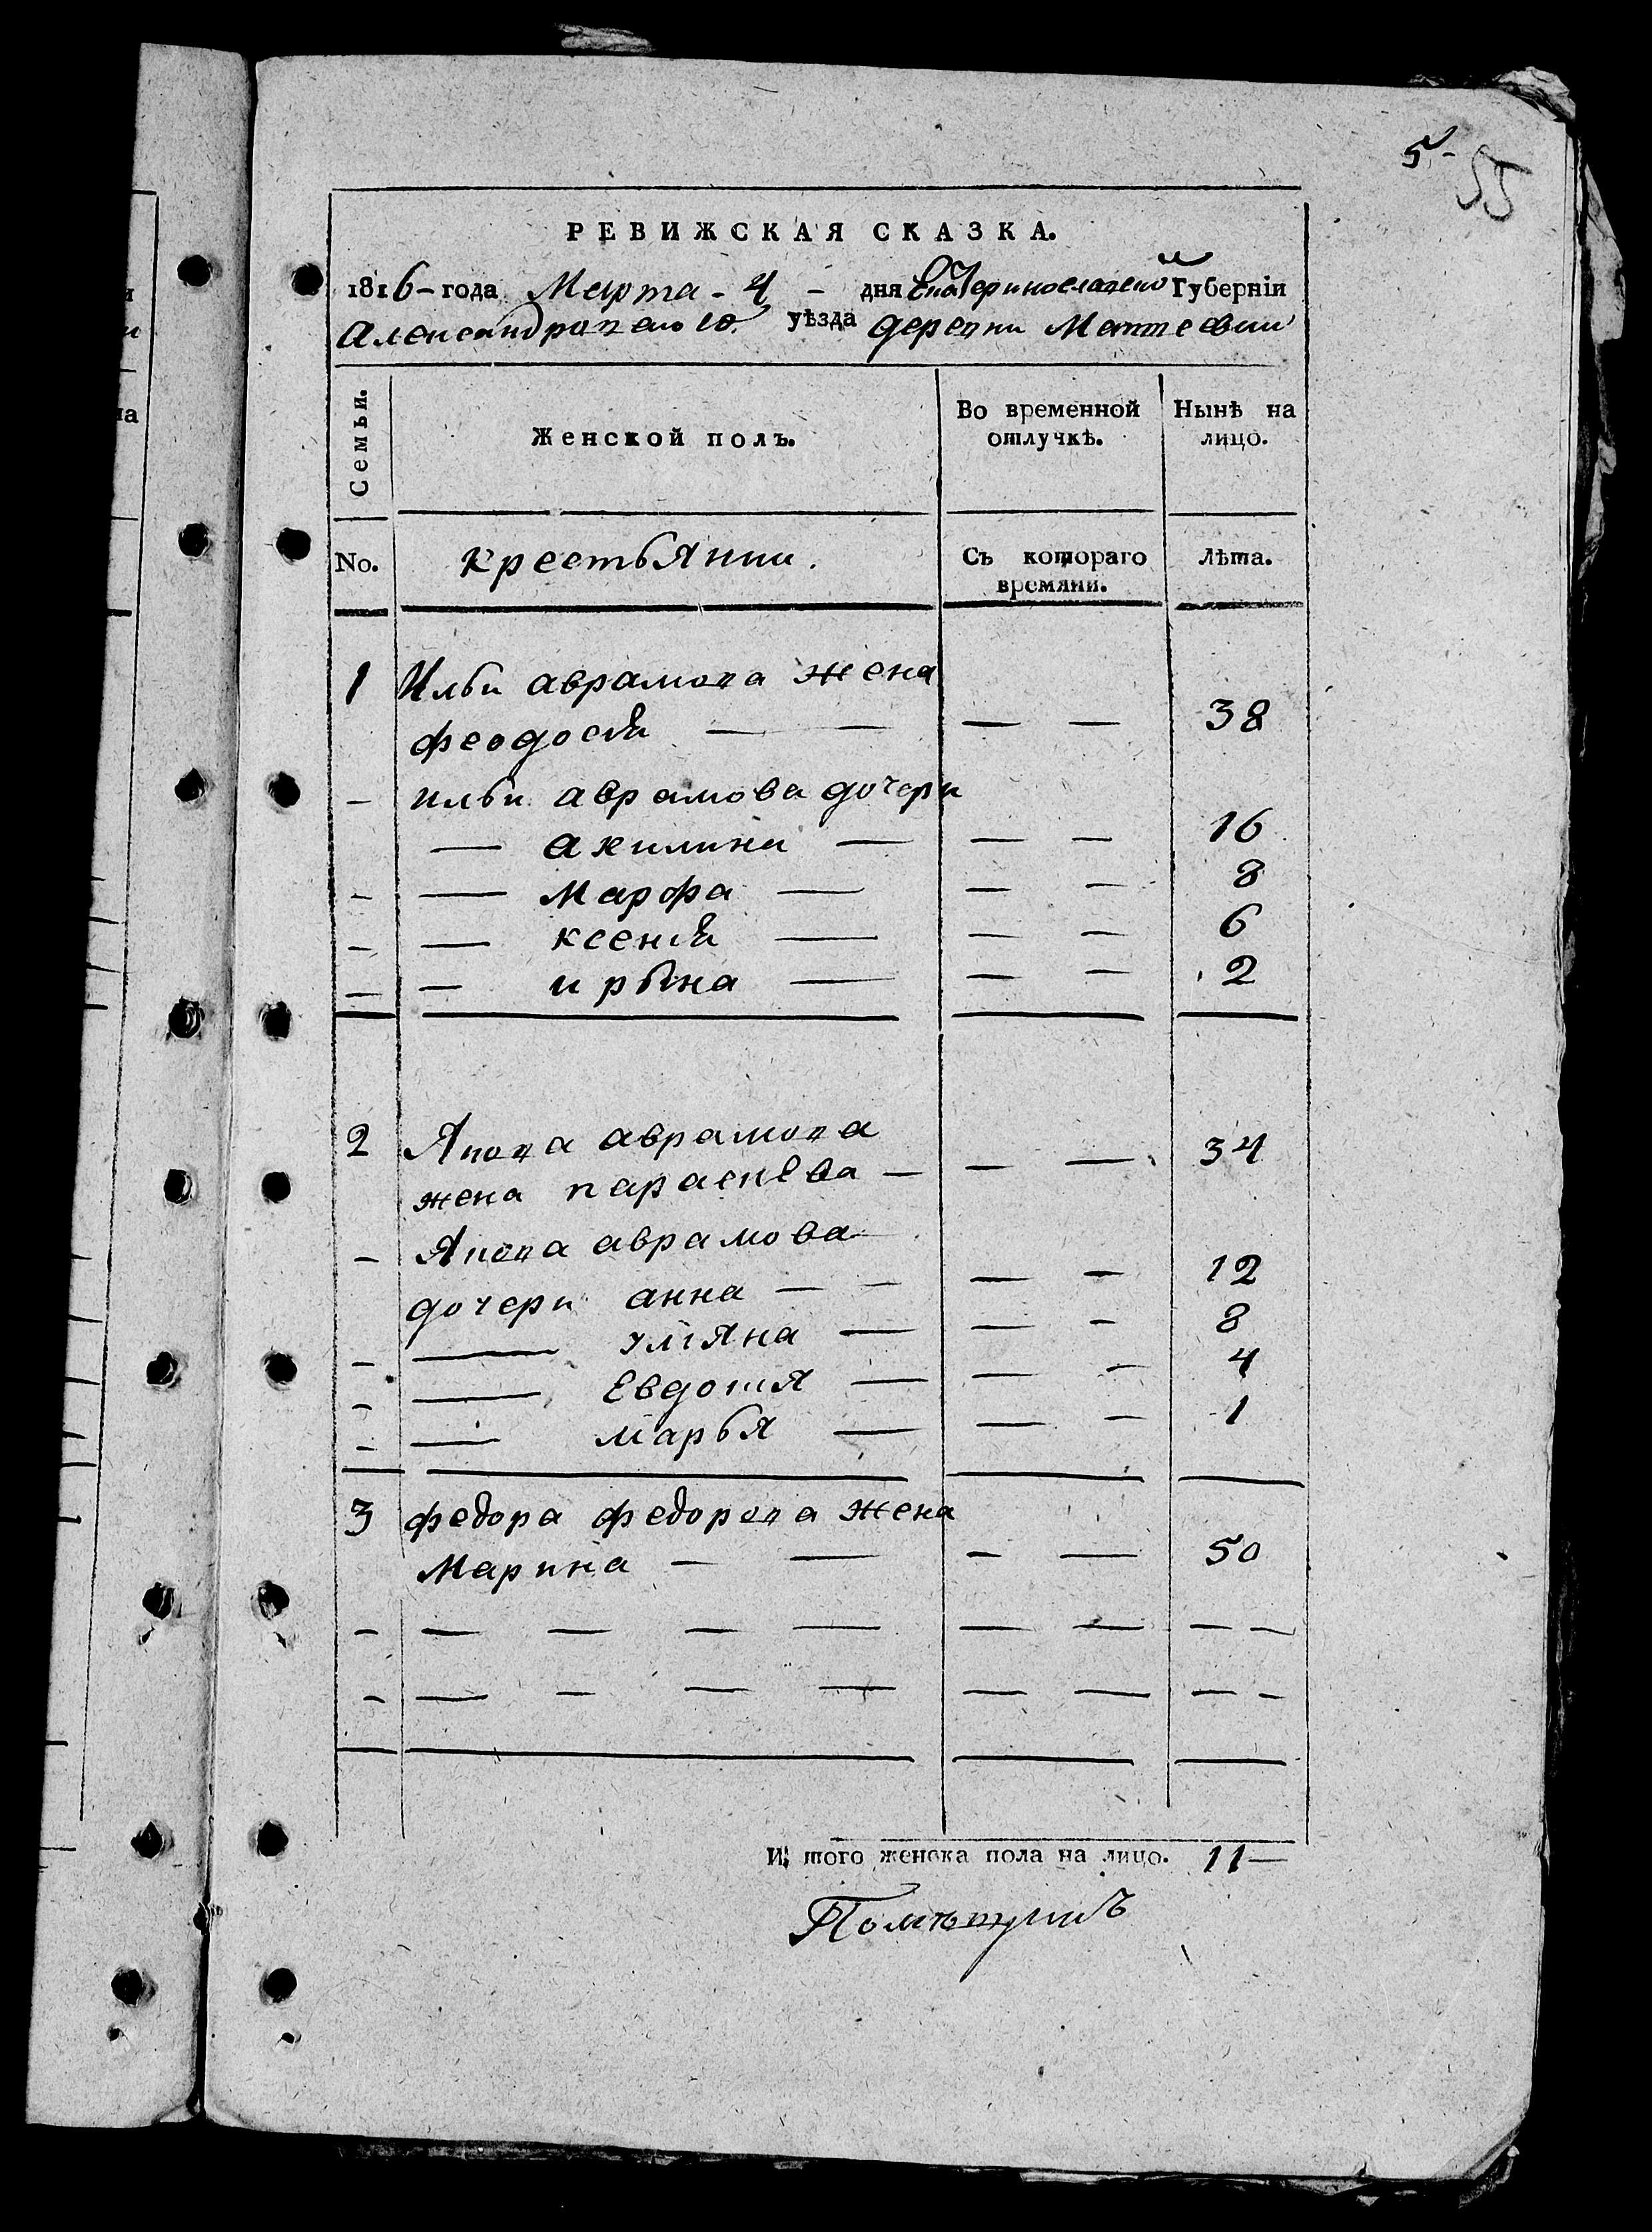 5-
55
РЕВИЖСКАЯ СКАЗКА.
1816-года Марта - 4 - дня Екатеринославской Губернїи
Александровскаго уѣзда деревни Матвеевки
Семьи.
Женской полъ.
Во временной отлучкѣ.
Нынѣ на лицо.
No.
крестьянки.
Съ котораго времяни.
Лѣта.
1 Ильи аврамова жена
феодосія — — — — 38
- ильи аврамова дочери
— акилина — — — 16
- — Марфа — — - 8
- — ксенія — — - 6
- — ирына — — - 2
2 Якова аврамова
жена параскева — — — 34
- Якова аврамова
дочери анна — - — - 12
- — улiяна — — - 8
- — Евдотия — — - 4
- — марья — — - 1
3 федора федорова жена
Марина — — - — 50
- — — — — — — — -
- — - — — — — — -
И; того женска пола на лицо. 11—